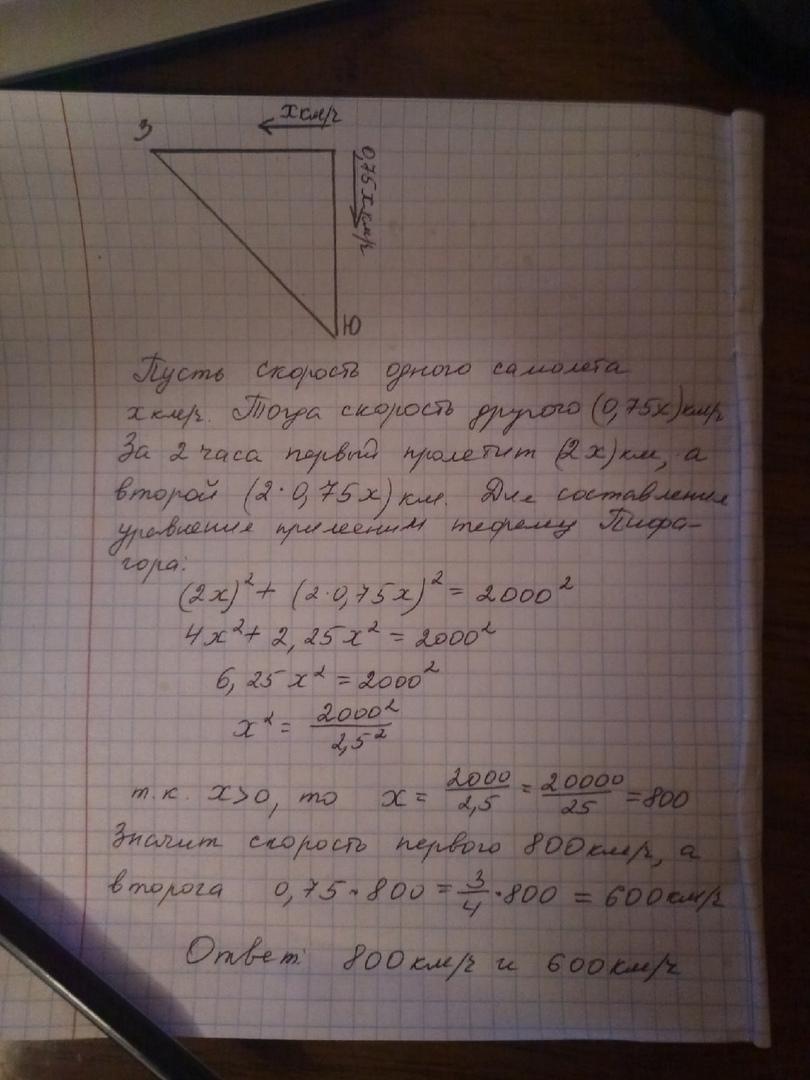 x км/ч
З
0,75 x км/ч
Ю
Пусть скорость одного самолета
x км/ч. Тогда скорость другого (0,75x) км/ч
За 2 часа первый пролетит (2x) км, а
второй (2·0,75x) км. Для составления
уравнения применим теорему Пифа-
гора:
(2x)² + (2·0,75x)² = 2000²
4x² + 2,25x² = 2000²
6,25x² = 2000²
x² = 2000²/2,5²
т.к. x>0, то x = 2000/2,5 = 20000/25 = 800
Значит скорость первого 800км/ч, а
второга 0,75·800 = 3/4·800 = 600км/ч
Ответ: 800км/ч и 600км/ч